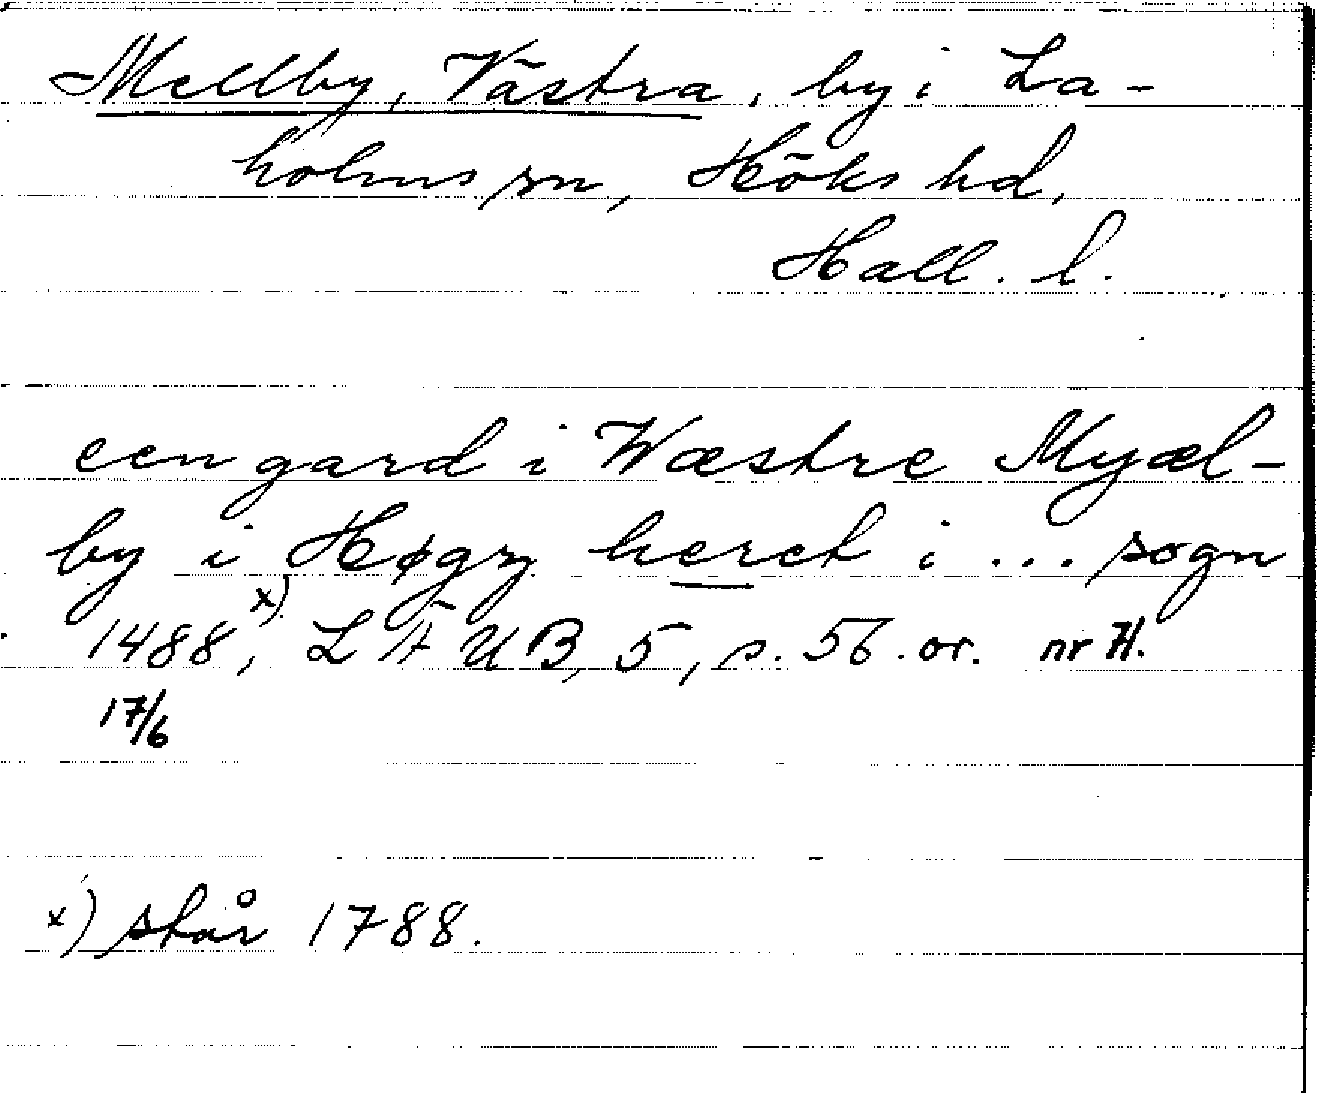 Mellby, Västra, by i La-
holms sn, Höks hd,
Hall. l.
een gard i Wæstre Myæl-
by i Høgz heret i ... sogn
1488,x) LÄUB, 5, s. 56. or. nr 71.
17/6
x) står 1788.